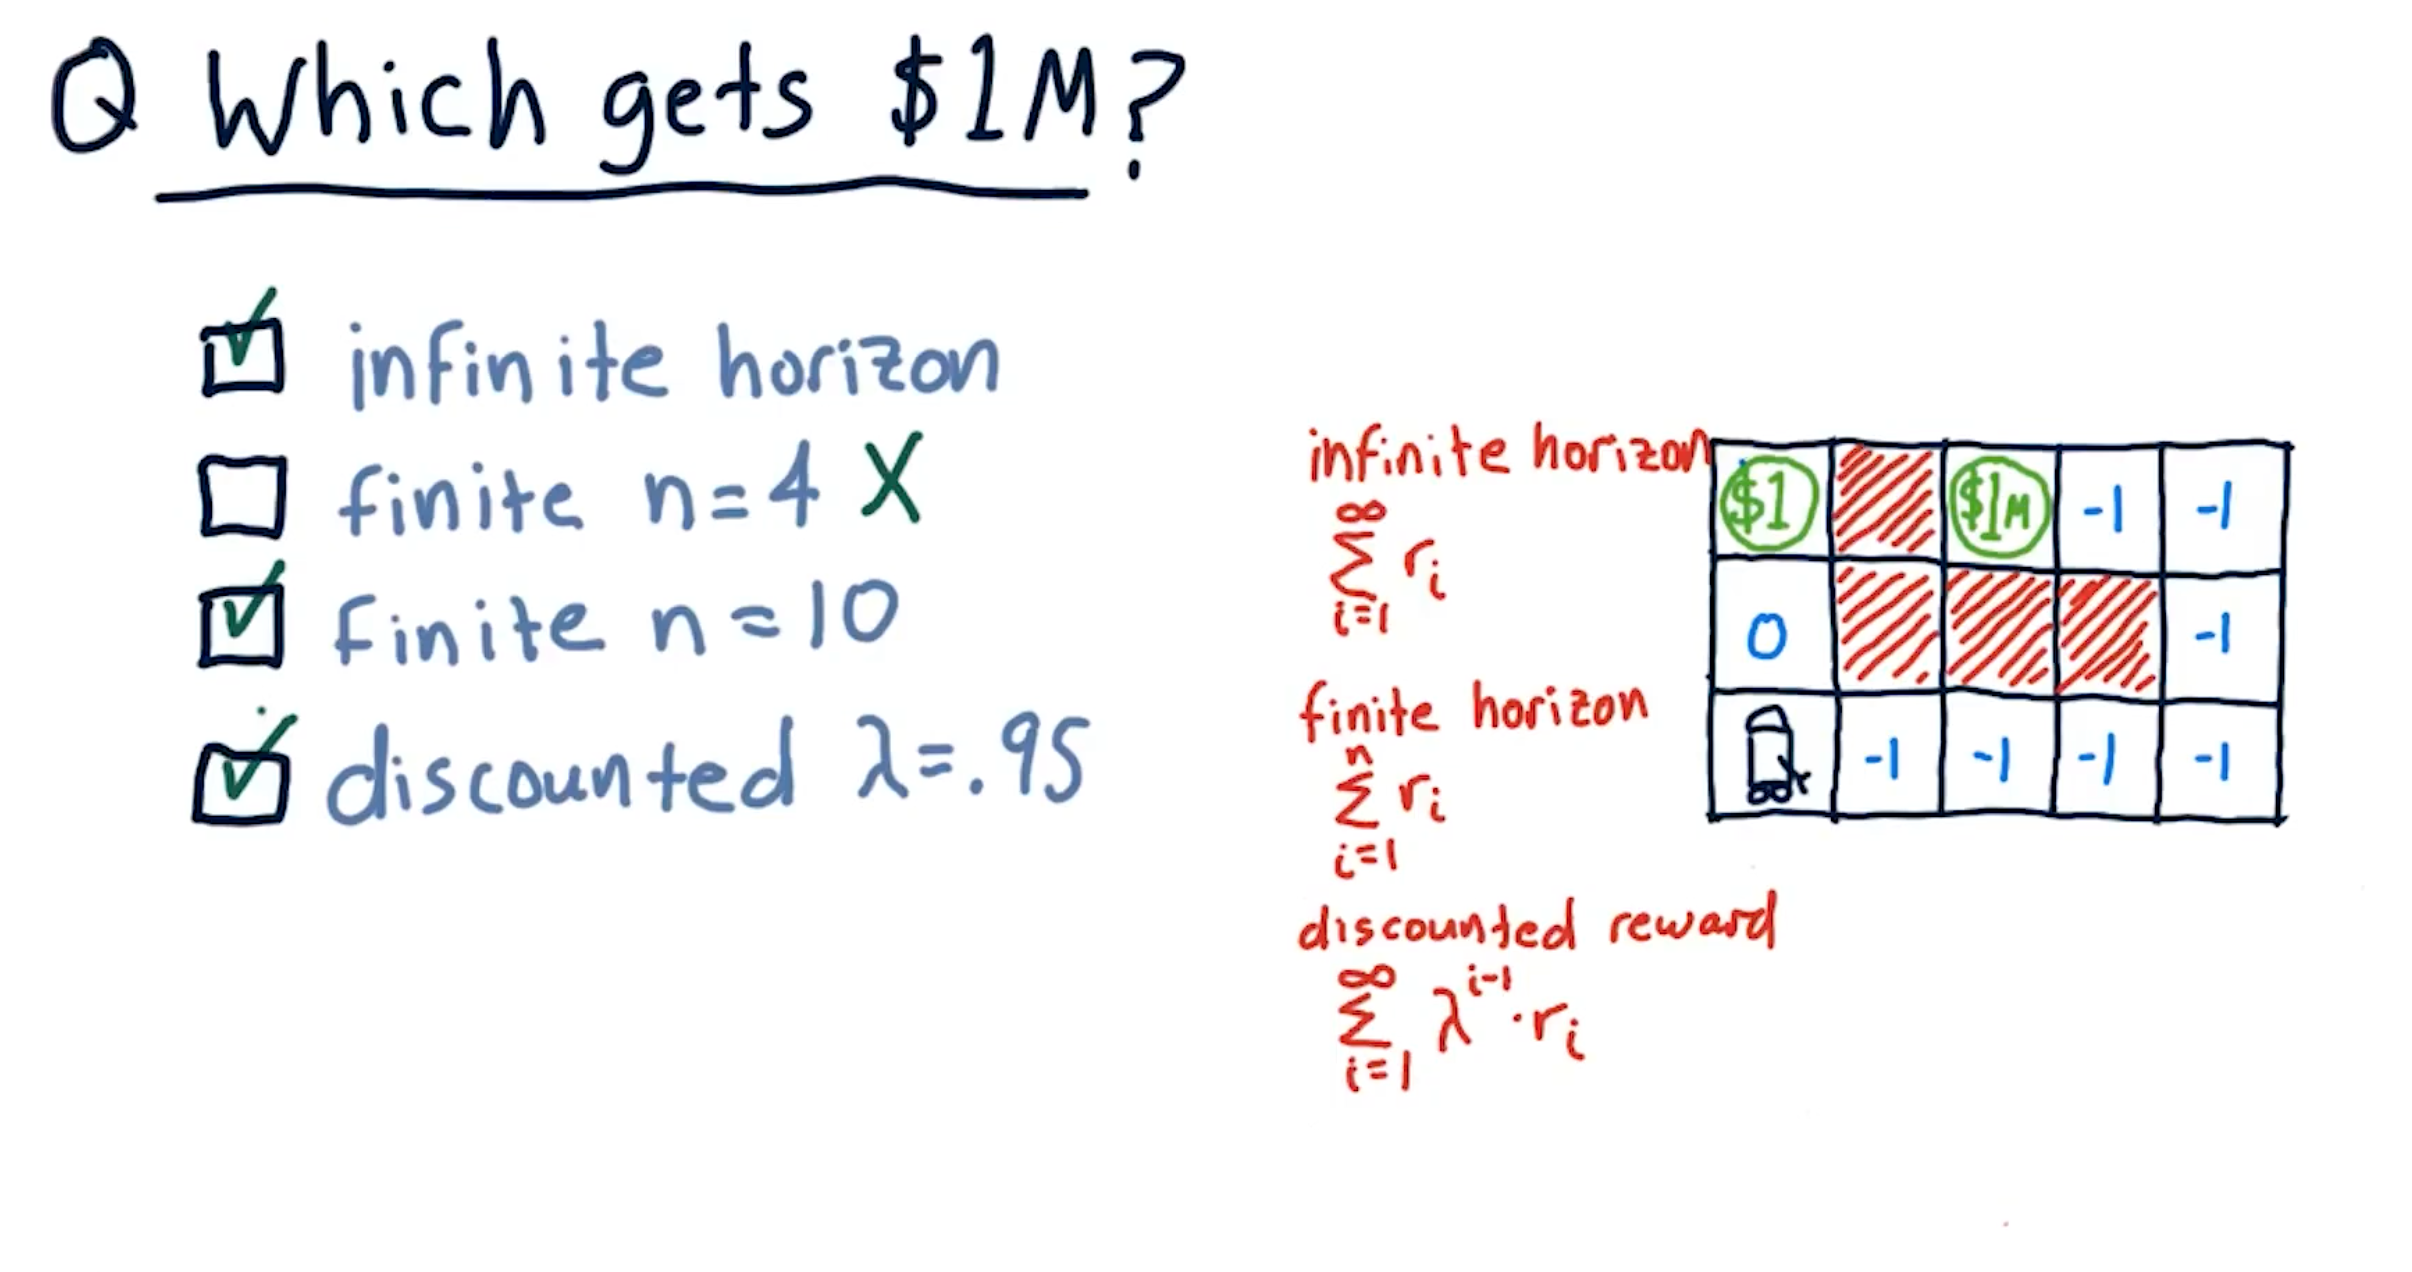 Q Which gets $1M?
infinite horizon
finite n=4 X
finite n=10
discounted λ=.95
infinite horizon
∞
Σ ri
i=1
finite horizon
n
Σ ri
i=1
discounted reward
∞
Σ λ^i-1 · ri
i=1
$1 $1M -1 -1
0 -1
-1 -1 -1 -1